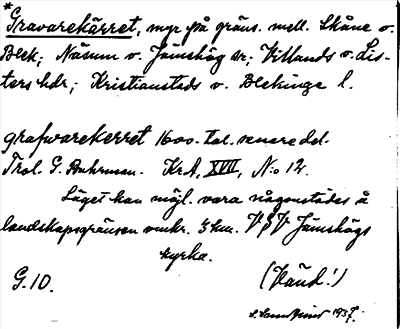 *Gravarekärret, myr på gräns. mell. Skåne o.
Blek; Näsum o. Jämshög sn; Villands o. Lis-
ters hdr; Kristianstads o. Blekinge l.
grafwarekerret 1600-tal. senare del.
Trol. G. Buhrman. KrA, XVII, N:o 12.
Läget kan möjl. vara någonstädes å
landskapsgränsen omkr. 5 km. VSV Jämshögs
kyrka.
G. 10.
(Händ!)
1937.